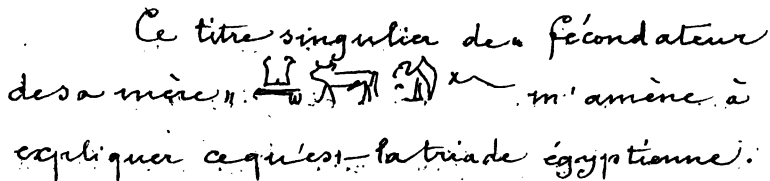 Ce titre singulier de « fécondateur
de sa mère » 𓂓𓃒𓅐𓆑 m'amène à
expliquer ce qu'est la triade égyptienne.